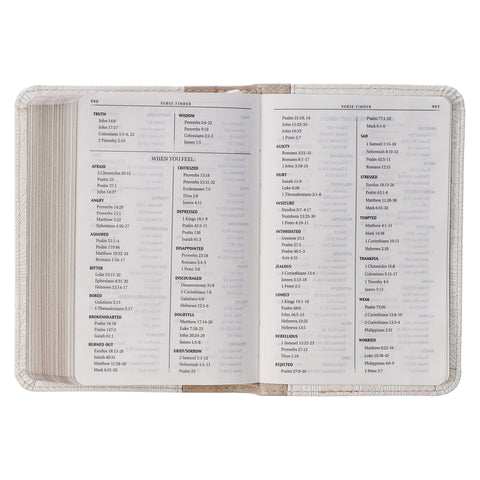 990
VERSE FINDER
TRUTH
John 14:6
John 17:17
Colossians 1:5-6, 23
2 Timothy 2:19
WISDOM
Proverbs 2:6-22
Proverbs 9:10
Colossians 2:2-3
James 1:5
WHEN YOU FEEL:
AFRAID
2 Chronicles 20:15
Psalm 23
Psalm 27:1
John 14:27
ANGRY
Proverbs 14:29
Proverbs 15:1
Matthew 5:22
Ephesians 4:26-27
ASHAMED
Psalm 51:2-4
Psalm 119:46
Matthew 10:32-33
Romans 1:16-17
BITTER
Luke 10:31-32
Ephesians 4:31-32
Hebrews 12:14-17
BORED
Galatians 5:13
1 Thessalonians 5:17
BROKENHEARTED
Psalm 34:18
Psalm 147:3
Isaiah 61:1
BURNED OUT
Exodus 18:15-26
Isaiah 40:31
Mark 6:31-32
CRITICIZED
Proverbs 13:18
Proverbs 15:31-32
Ecclesiastes 7:5
Titus 2:8
DEPRESSED
1 Kings 19:3-9
Psalm 42:5-11
Psalm 130
Isaiah 61:3
DISAPPOINTED
Proverbs 23:18
Romans 5:4-5
1 Peter 2:6
DISCOURAGED
Deuteronomy 31:8
2 Corinthians 7:6
Galatians 6:9
Hebrews 12:5
DOUBTFUL
Matthew 17:14-20
Luke 7:18-23
John 20:24-29
James 1:5-8
GRIEF/SORROW
2 Samuel 1:1-12
Nehemiah 1:1-11
Psalm 23
VERSE FINDER
991
Psalm 31:10, 14
John 11:35
John 16:33
1 Peter 5:7
GUILTY
Romans 3:21-31
Romans 8:1-17
1 John 3:18-24
HURT
Isaiah 11:9
Luke 4:28
1 Thessalonians 3:1-8
INSECURE
Exodus 3:7-4:17
Numbers 13:25-30
1 Peter 4:10-11
INTIMIDATED
Genesis 15:1
Psalm 27:1
Psalm 46:1-3
Acts 4:31
JEALOUS
1 Corinthians 13:4
James 3:13-18
James 5:1-5
LONELY
1 Kings 19:1-18
Psalm 68:6
John 16:5-15
Hebrews 13:5
REBELLIOUS
1 Samuel 15:22-23
Proverbs 17:11
Titus 1:10
REJECTED
Psalm 27:9-10
Psalm 77:1-12
Mark 6:1-6
SAD
1 Samuel 1:15-18
Nehemiah 8:10-12
Psalm 42:5-11
Romans 12:15
STRESSED
Exodus 18:13-26
Psalm 62:1-8
Mark 4:35-41
TEMPTED
Matthew 4:1-11
Mark 14:38
1 Corinthians 10:13
Hebrews 2:18
THANKFUL
1 Chronicles 16:8
Colossians 3:15-17
1 Timothy 4:4
James 5:13
WEAK
Psalm 73:26
2 Corinthians 12:8-10
2 Corinthians 13:4
Philippians 4:13
WORRIED
Matthew 6:25-34
Luke 10:38-42
Philippians 4:6-9
1 Peter 5:7